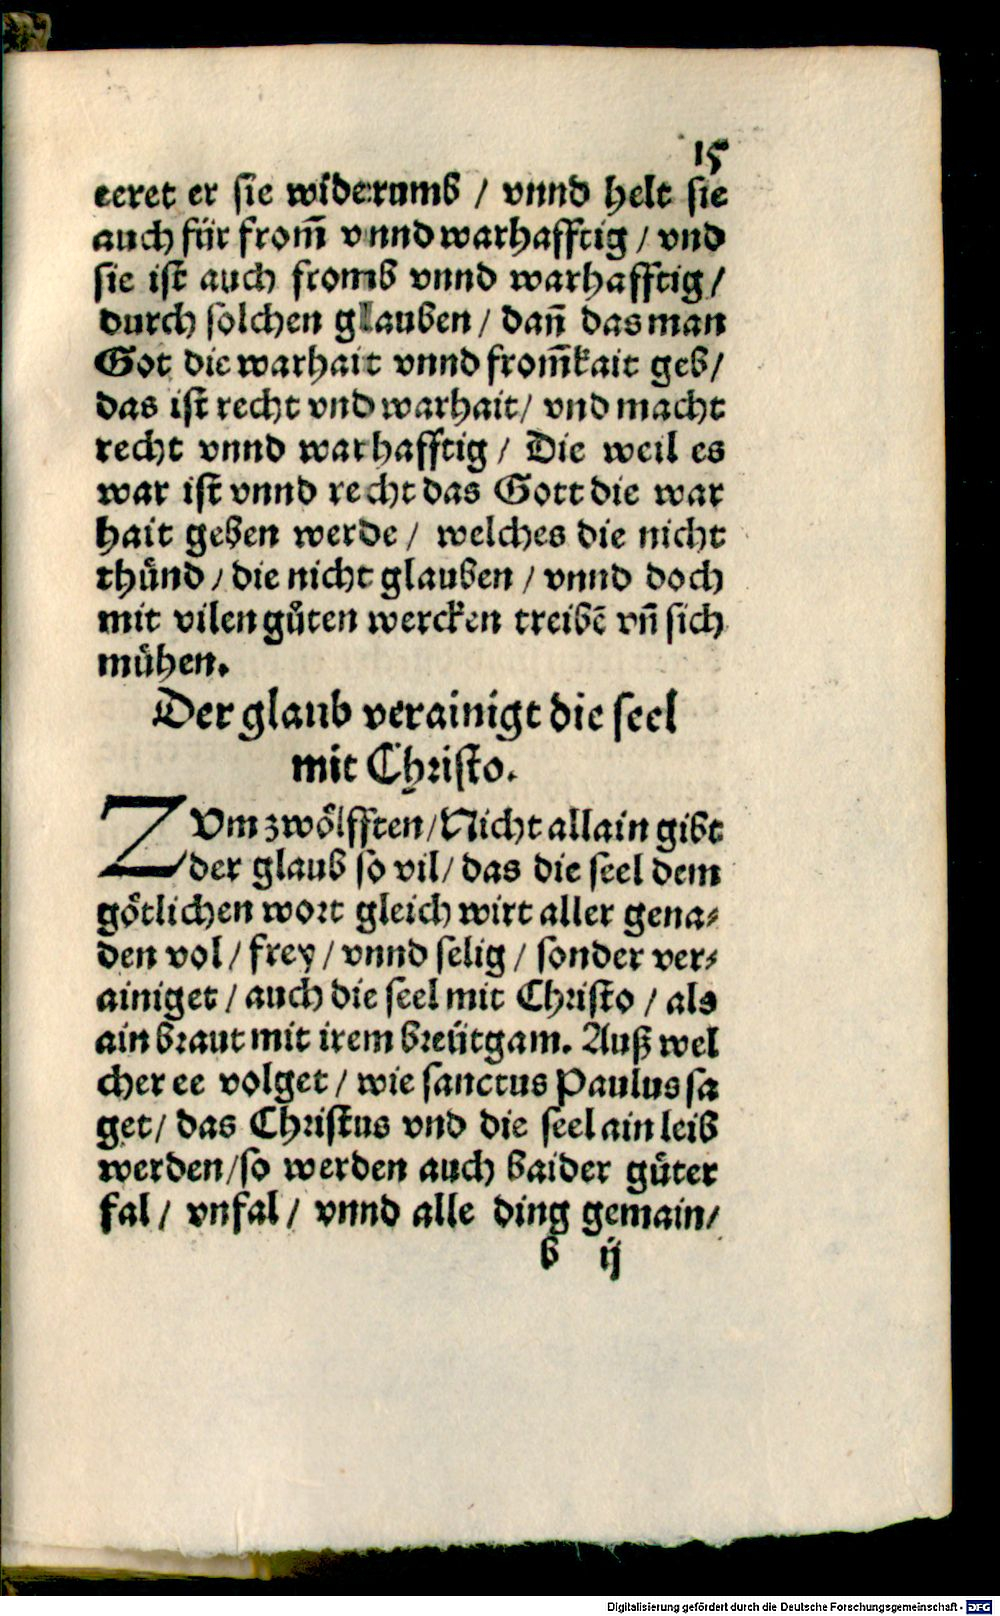 15
eeret er sie widerumb / vnnd helt sie
auch für from̃ vnnd warhafftig / vnd
sie ist auch fromb vnnd warhafftig /
durch solchen glauben / dan̄ das man
Got die warhait vnnd from̃kait geb /
das ist recht vnd warhait / vnd macht
recht vnnd warhafftig / Die weil es
war ist vnnd recht das Gott die war
hait geben werde / welches die nicht
thuͤnd / die nicht glauben / vnnd doch
mit vilen guͤten wercken treibē vn̄ sich
muͤhen.
Der glaub verainigt die seel
mit Christo.
ZVm zwoͤlfften / Nicht allain gibt
der glaub so vil / das die seel dem
goͤtlichen wort gleich wirt aller gena⸗
den vol / frey / vnnd selig / sonder ver⸗
ainiget / auch die seel mit Christo / als
ain braut mit irem breütgam. Auß wel
cher ee volget / wie sanctus Paulus sa
get / das Christus vnd die seel ain leib
werden / so werden auch baider guͤter
fal / vnfal / vnnd alle ding gemain /
b ij
Digitalisierung gefördert durch die Deutsche Forschungsgemeinschaft - DFG